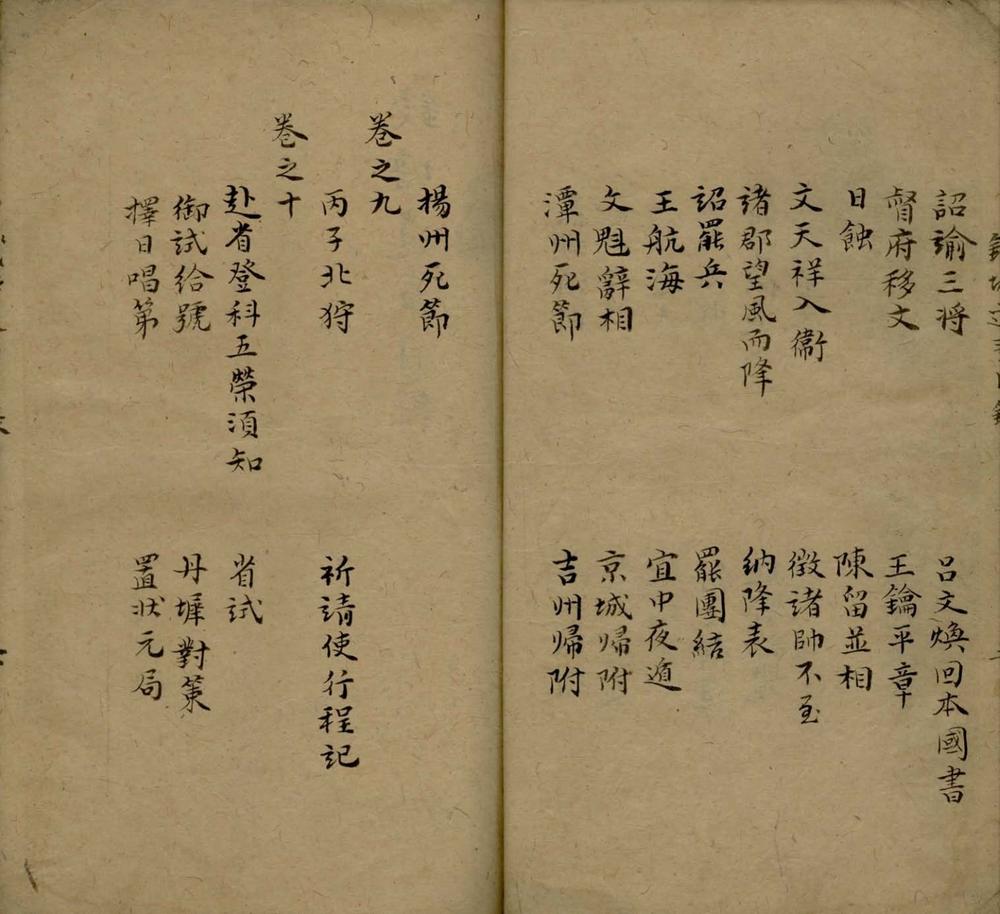 詔諭三将
呂文煥回本國書
督府移文
王鑰平章
日蝕
陳留並相
文天祥入衞
徴諸帥不至
諸郡望風而降
納降表
詔罷兵
罷團結
王航海
宜中夜遁
文魁辭相
京城帰附
潭州死節
吉州帰附
楊州死節
卷之九
丙子北狩
祈請使行程記
卷之十
赴省登科五榮湏知
省試
御試給號
丹墀對策
擇日唱第
置状元局